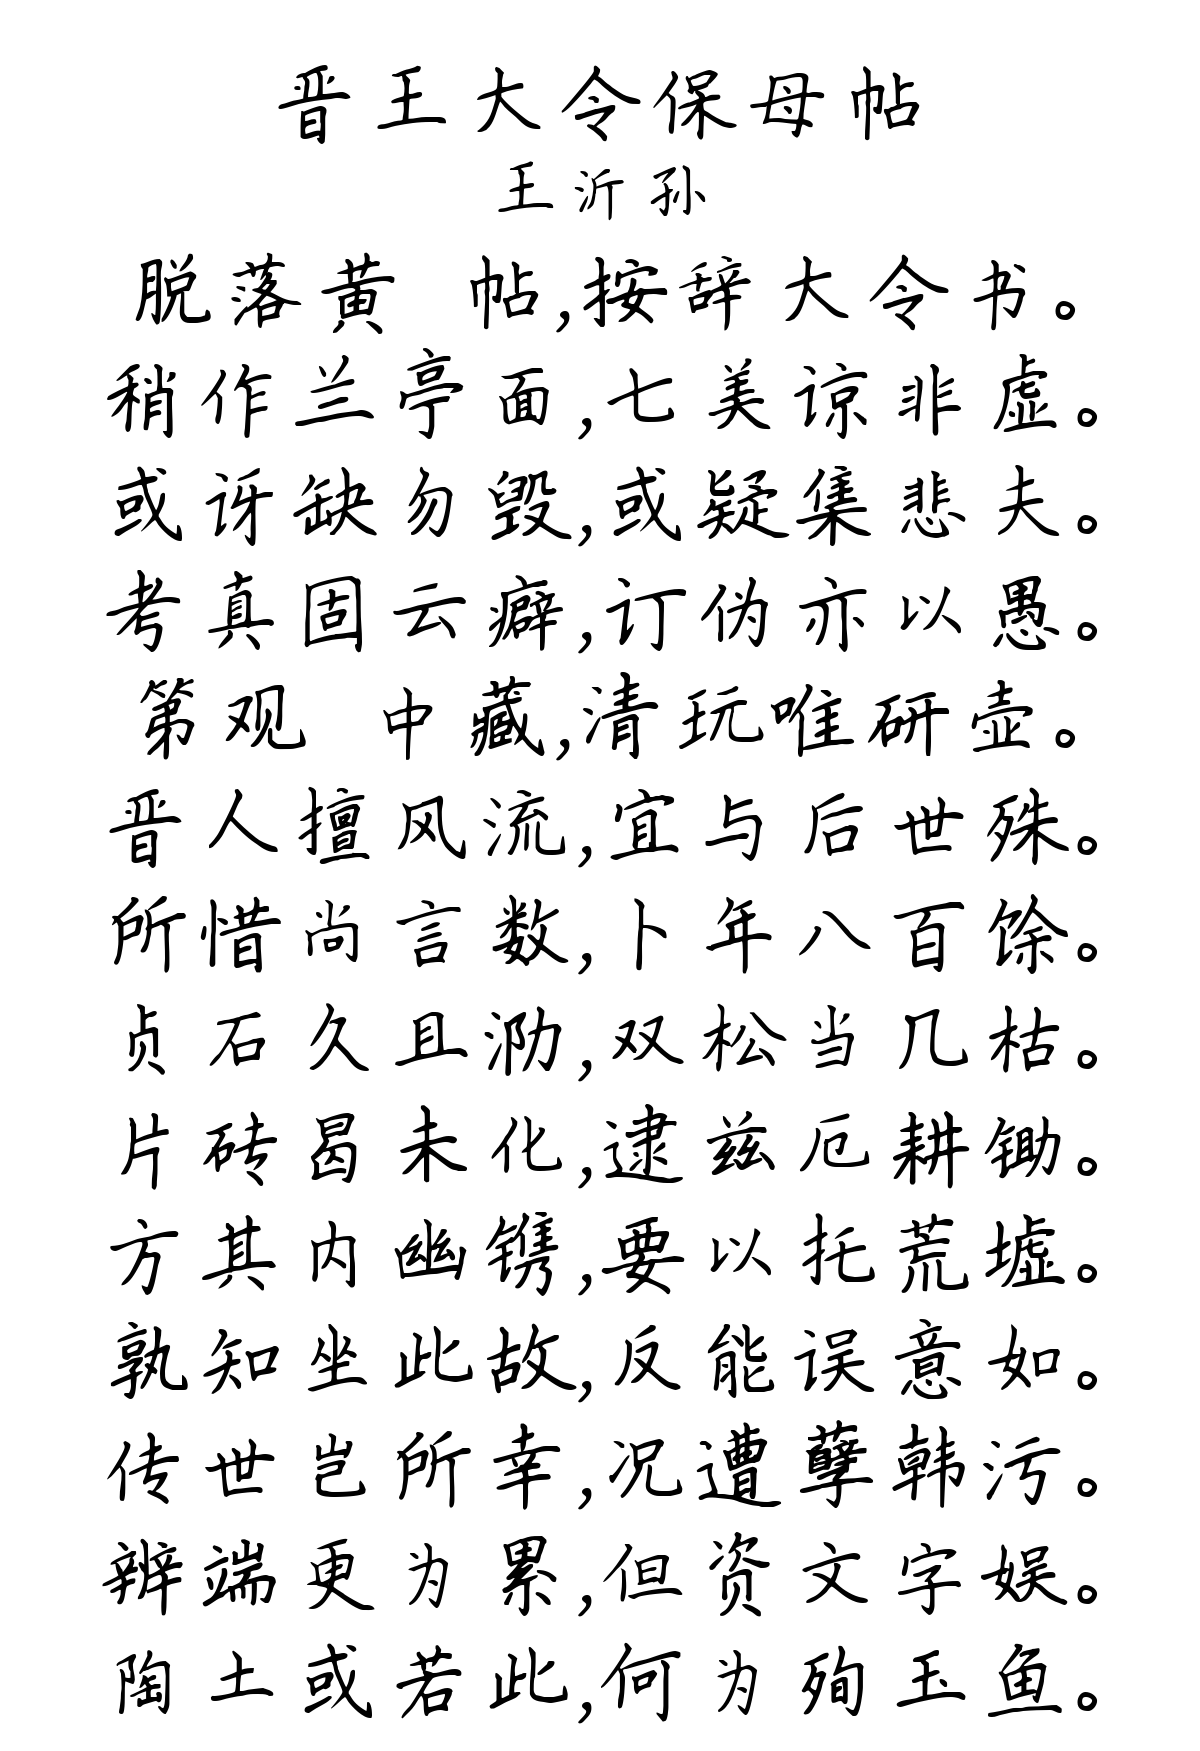 晋王大令保母帖
王沂孙
脱落黄 帖,按辞大令书。
稍作兰亭面,七美谅非虚。
或讶缺勿毁,或疑集悲夫。
考真固云癖,订伪亦以愚。
第观 中藏,清玩唯研壶。
晋人擅风流,宜与后世殊。
所惜尚言数,卜年八百馀。
贞石久且泐,双松当几枯。
片砖曷未化,逮兹厄耕锄。
方其内幽镌,要以托荒墟。
孰知坐此故,反能误意如。
传世岂所幸,况遭孽韩污。
辨端更为累,但资文字娱。
陶土或若此,何为殉玉鱼。